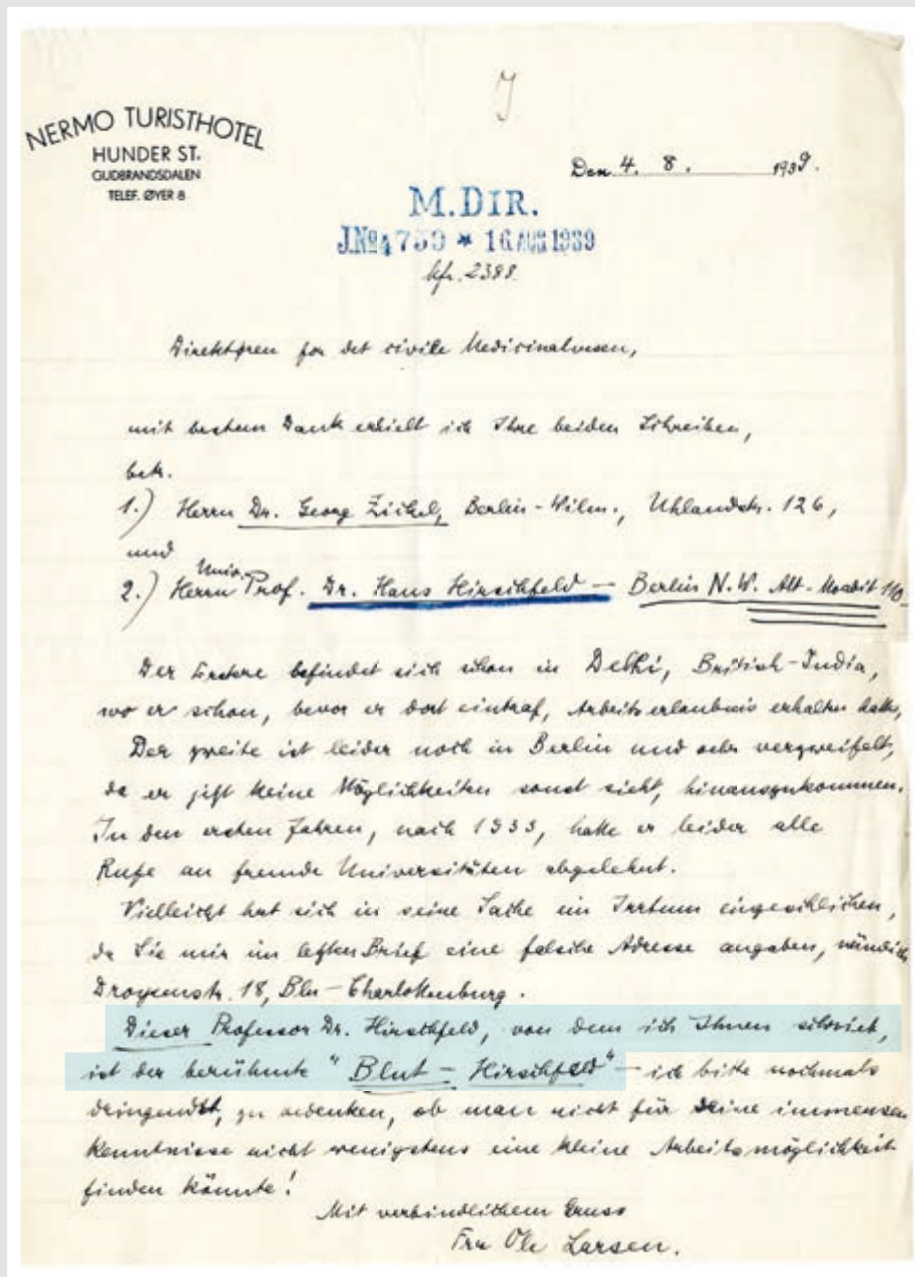 J
NERMO TURISTHOTEL
HUNDER ST.
GUDBRANDSDALEN
TELEF. ØYER 8
Den 4. 8. 1939.
M. DIR.
J.№4759 * 16 AUG 1939
kfr. 2388.
Direktøren for det civile Medicinalvesen,
mit bestem Dank erhielt ich Ihre beiden Schreiben,
betr.
1.) Herrn Dr. Georg Zickel, Berlin-Wilm., Uhlandstr. 126,
und
Univ.
2.) Herrn Prof. Dr. Hans Hirschfeld — Berlin N.W. Alt-Moabit 110
Der Erstere befindet sich schon in Delhi, British-India,
wo er schon, bevor er dort eintraf, Arbeitserlaubnis erhalten hatte,
Der zweite ist leider noch in Berlin und sehr verzweifelt,
da er jetzt keine Möglichkeiten sonst sieht, hinauszukommen.
In den ersten Jahren, nach 1933, hatte er leider alle
Rufe an fremde Universitäten abgelehnt.
Vielleicht hat sich in seine Sache ein Irrtum eingeschlichen,
da Sie mir im letzten Brief eine falsche Adresse angaben, nämlich
Droysenstr. 18, Bln-Charlottenburg.
Dieser Professor Dr. Hirschfeld, von dem ich Ihnen schrieb,
ist der berühmte "Blut-Hirschfeld" — ich bitte nochmals
dringendst, zu bedenken, ob man nicht für seine immensen
Kenntnisse nicht wenigstens eine kleine Arbeitsmöglichkeit
finden könnte!
Mit verbindlichem Gruss
Fru Ole Larsen.